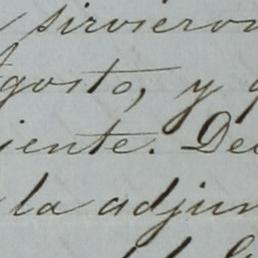 sirvieron
gosto, y
iente. De
la adjun